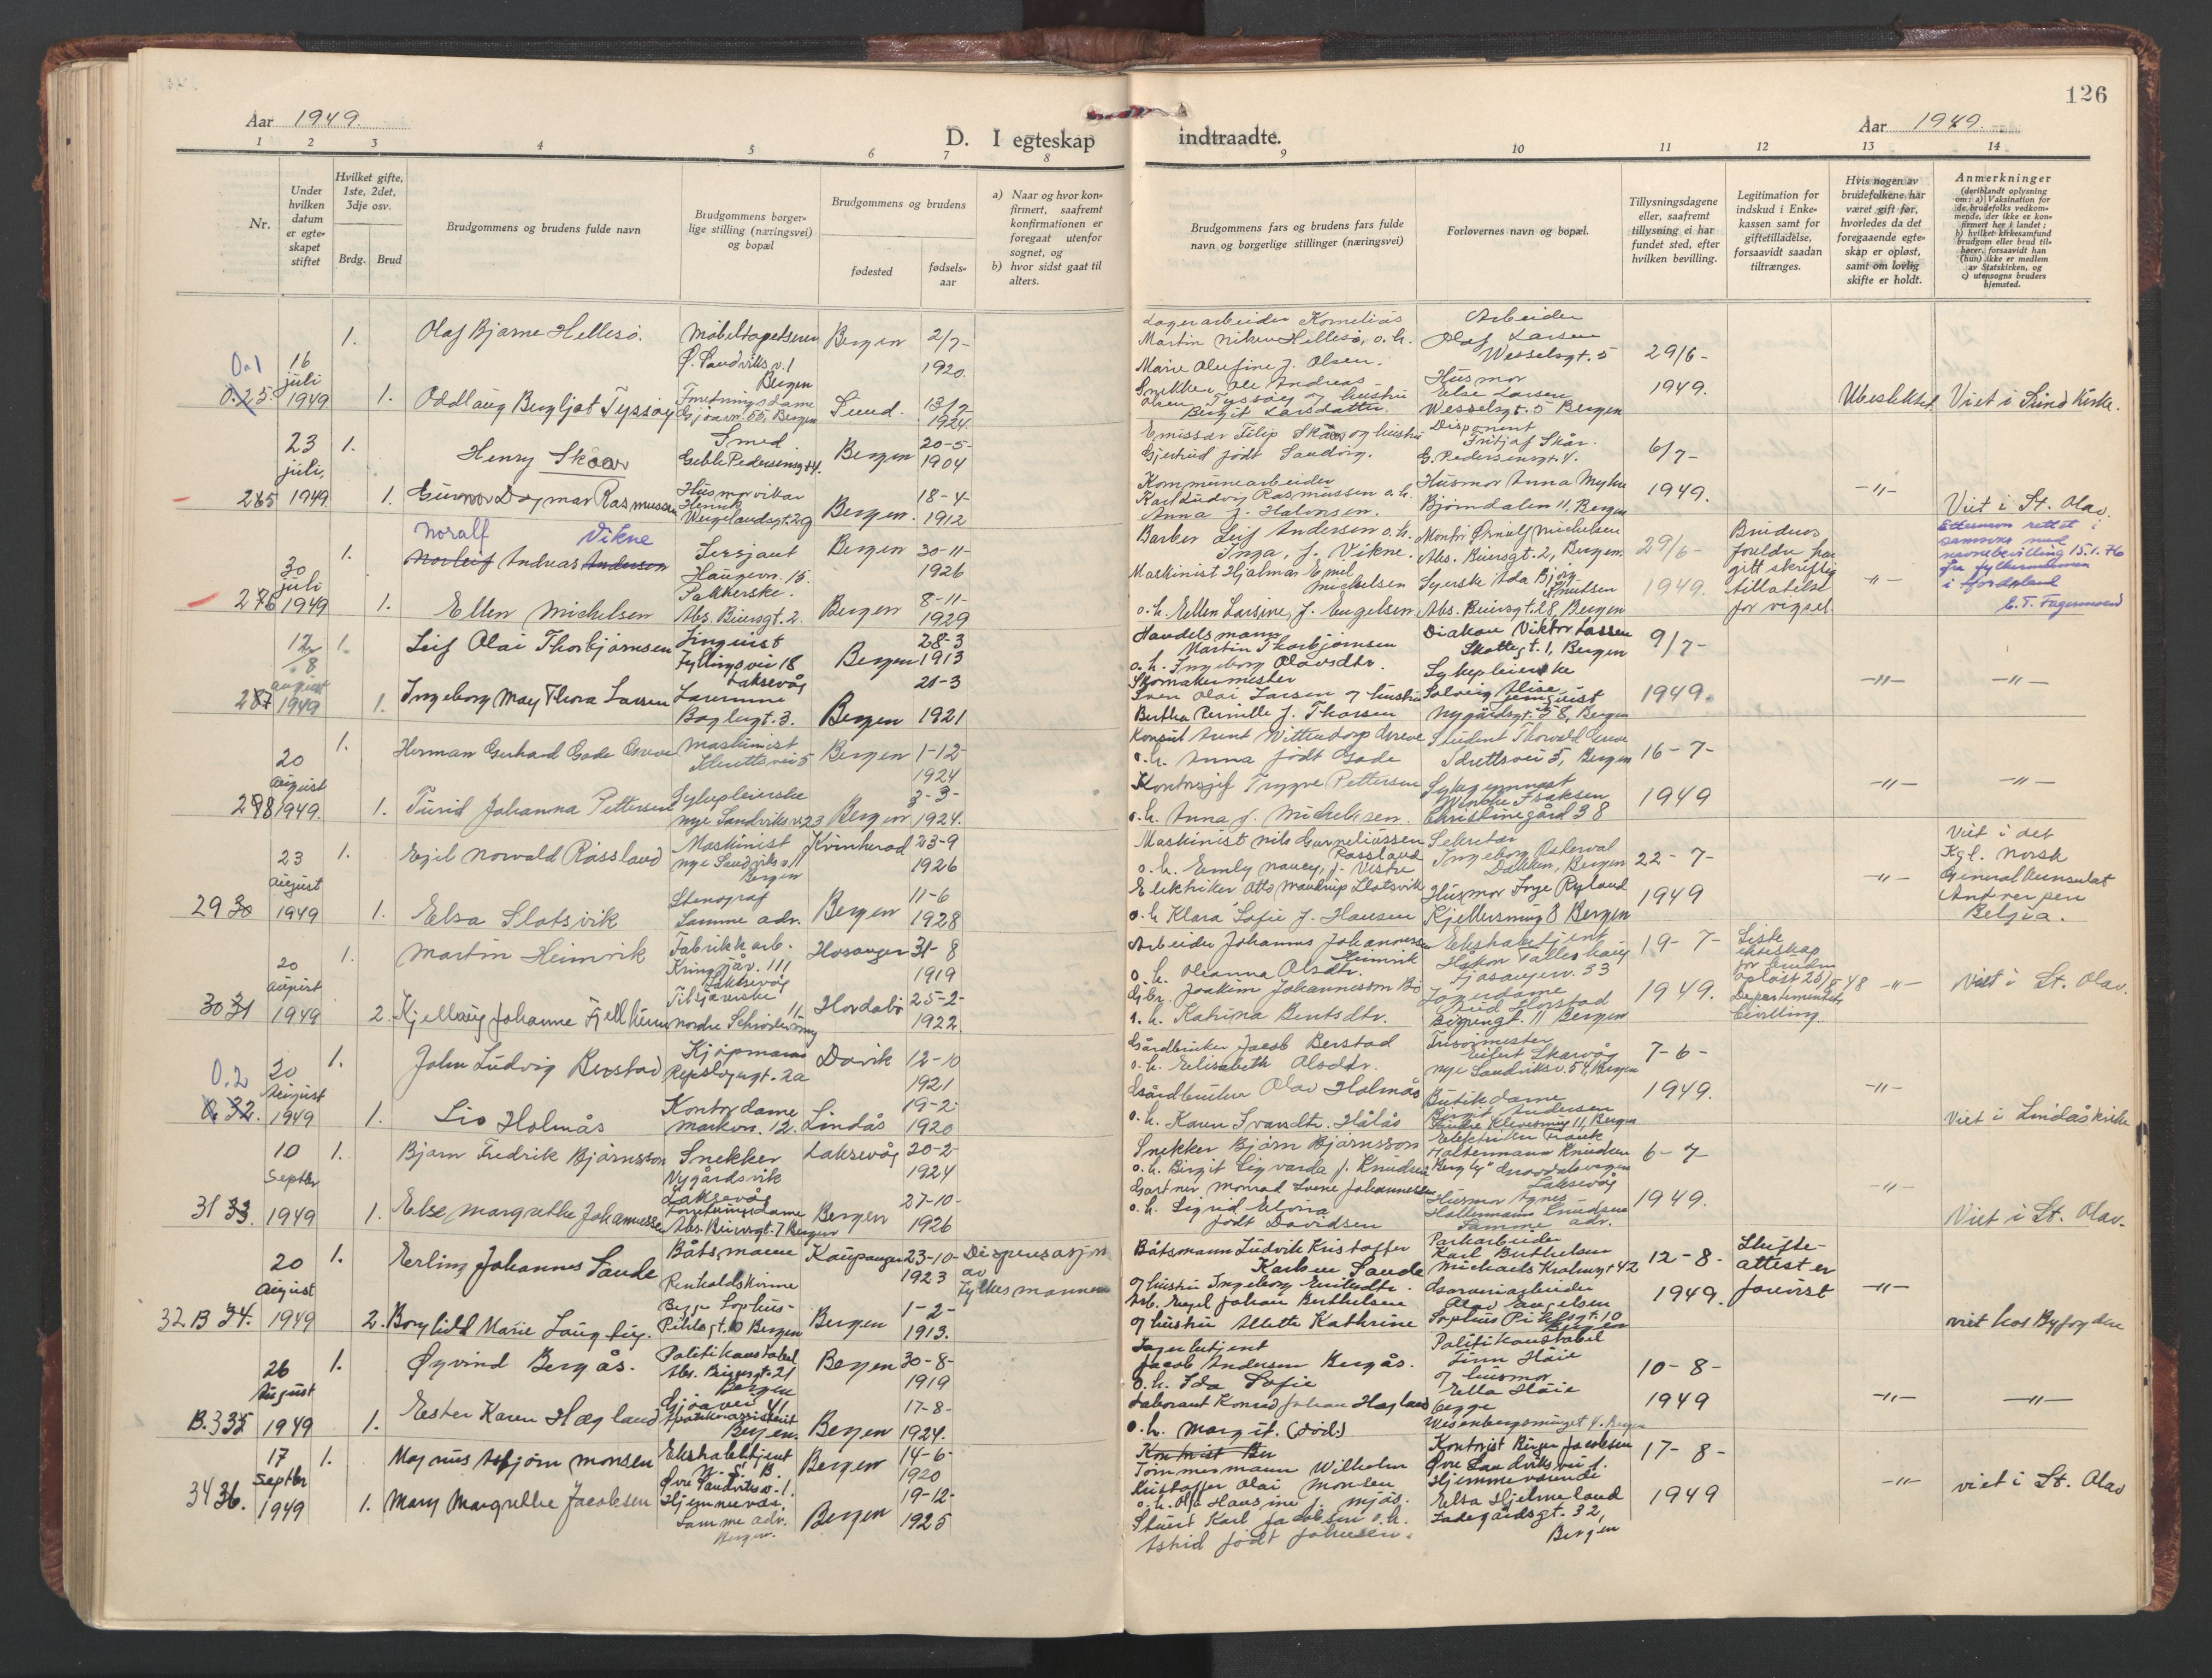 126
Aar 1949.
D. I egteskap indtraadte.
Aar 1949.
1 2 3 4 5 6 7 8 9 10 11 12 13 14
Nr.
Under hvilken datum er egte-skapet stiftet
Hvilket gifte, 1ste, 2det, 3dje osv.
Brdg. Brud
Brudgommens og brudens fulde navn
Brudgommens borger-lige stilling (næringsvei) og bopæl
Brudgommens og brudens
fødested
fødsels-aar
a) Naar og hvor kon-firmert, saafremt konfirmationen er foregaat utenfor sognet, og
b) hvor sidst gaat til alters.
Brudgommens fars og brudens fars fulde navn og borgerlige stillinger (næringsvei)
Forlovernes navn og bopæl.
Tillysningsdagene eller, saafremt tillysning ei har fundet sted, efter hvilken bevilling.
Legitimation for indskud i Enke-kassen samt for giftetilladelse, forsaavidt saadan tiltrænges.
Hvis nogen av brudefolkene har været gift før, hvorledes da det foregaaende egte-skap er opløst, samt om lovlig skifte er holdt.
Anmerkninger
(deriblandt oplysning om: a) Vaksination for de brudefolks vedkom-mende, der ikke er kon-firmert her i landet; b) hvilket kirkesamfund brudgom eller brud til-hører, forsaavidt han (hun) ikke er medlem av Statskirken, og c) utensogns bruders hjemsted.
0.1
0.25.
16 juli 1949
1. Olaf Bjarne Hellesö.
Møbeltapetserer
Ø. Sandviksv. 1
Bergen
Bergen 2/7- 1920.
Lagerarbeider Kornelius
Martin Hellesö, o.h.
Marie Olufine f. Olsen.
Arbeider
Olaf Larsen
Wesselsgt. 5
29/6- 1949.
1. Oddlaug Bergljot Tyssøy
Forretningsdame
Gjøavn. 55, Bergen
Sund. 13/7 1924
Snekker Ole Andreas
Olsen Tyssøy og hustru
Birgit Larsdatter.
Husmor
Else Larsen
Wesselsgt. 5 Bergen
Ubeslektet
Viet i Sund Kirke.
265
23 juli, 1949
1. Henry Skaar
Smed
Geble Pedersensgt 4.
Bergen 20-5- 1904
Emissær Filip Skaar og hustru
Gjertrud født Sandvig.
Disponent
Fritjof Skår.
G. Pedersensgt. 4.
6/7- 1949.
1. Gunnvor Dagmar Rasmussen
Husmorvikar
Henrik
Wergelandsgt. 29
Bergen. 18-4- 1912
Kommunearbeider
Karl Ludvig Rasmussen o.h.
Anna f. Halvorsen.
Husmor Anna Myhre
Bjørndalen 11, Bergen
-"-
Viet i St. Olav.
276
30 juli 1949
Noralf Vikne
1. Norleif Andreas Andersen
Sersjant
Haugevn. 15.
Bergen 30-11- 1926
Barber Leif Andersen o.h.
Inga, f. Vikne.
Montør Ørnulf Michelsen
Abs. Beiersgt. 2, Bergen.
29/6- 1949.
Brudens
foreldre har
gitt skriftlig
tillatelse
for vigsel.
1. Ellen Michelsen
Sekkerske.
Abs. Beiersgt. 2.
Bergen 8-11- 1929
Maskinist Hjalmar Emil
Michelsen
o.h. Ellen Larsine, f. Engelsen.
Syerske Ada Bjørg
Knutsen
Abs. Beiersgt. 28, Bergen
-"-
Etternavn rettet i
samsvar med
navnebevilling 15.1.76
fra fylkesmannen
i Hordaland
E. T. Fagermoen
287
12/8 august 1949
1. Leif Olai Thorbjørnsen
Fyllingsvei 18
Laksevåg
Bergen 28-3 1913
Handelsmann
Martin Thorbjørnsen
o.h. Ingeborg Olavsdtr.
Diakon Viktor Lassen
Skottegt. 1, Bergen
9/7- 1949.
1. Ingeborg May Thora Larsen
Samme
Baglergt. 3.
Bergen 21-3 1921
Skomakermester
Sven Olai Larsen og hustru
Bertha Pernille f. Thorsen
Sykepleierske
Solveig Alise
Nygårdsgt. 58, Bergen
-"- -"-
298
20 august 1949.
1. Herman Gerhard Gade Greve
Maskinist
Idrettsvei 5
Bergen 1-12- 1924
Konsul Arnt Wittendorp Greve
o.h. Anna født Gade
Student Thorvald Greve
Idrettsvei 5, Bergen
16-7- 1949
1. Turid Johanna Pettersen
Sykepleierske
Nye Sandviksv. 23
Bergen 3-3- 1924.
Kontorsjef Trygve Pettersen
o.h. Anna f. Michelsen.
Sykegymnast
Wenche Isaksen
Christinegård 38
-"- -"-
29 30
23 august 1949
1. Egil Norvald Røssland
Maskinist
Nye Sandviksv. 11
Bergen
Kvinherad 23-9 1926
Maskinist Nils Corneliussen
Røssland
o.h. Emly Nancy, f. Vestre
Sekretær
Ingeborg Østerval
Dalken, Bergen
22-7- 1949
1. Elsa Slotsvik
Stenograf
Samme adr.
Bergen 11-6 1928
Elektriker Otto Maudrup Slotsvik
o.h. Klara Sofie f. Hansen
Husmor Inge Ryland
Kjellersmug 8 Bergen
-"-
Viet i det
Kgl. Norsk
Generalkonsulat
Antverpen
Belgia.
30 31
20 august 1949
1. Martin Heimvik
Fabrikkarb.
Kringsjåv. 111
Laksevåg
Hosanger 31-8 1919
Arbeider Johannes Johannessen
Heimvik
o.h. Olianna Olsdtr.
Ekskabetjent
Håkon Tælleshaug
Fjøsangerv. 33
19-7- 1949.
Siste
ekteskap
for bruden
oppløst 25/5-48
Departementets
bevilling.
2. Kjellaug Johanne Fjellheim
Tilsjarske
Nordre Schrøderssmug 11
Hordabø 25-2- 1922
Gbr. Joakim Johannesson Bö
o.h. Katrina Bentsdtr.
Lagerdame
Aud Horstad
Bispengt. 11 Bergen
-"-
Viet i St. Olav.
0.2
0. 32.
20 August 1949
1. John Ludvig Berstad
Kjøpmann
Repslagergt. 2a
Davik 12-10 1921
Gårdbruker Jacob Berstad
o.h. Elisabeth Olsdtr.
Frisørmester
Eilert Skarvøy
Nye Sandviksv. 54, Bergen
7-6- 1949.
1. Liv Holmås
Kontordame
Markvn. 12.
Lindås 19-2- 1920
Gårdbruker Olav Holmås
o.h. Karen Ivarsdtr. Hålås
Butikdame
Birgit Andersen
Søndre Klevesmug 11, Bergen
-"-
Viet i Lindåskirke
31 33.
10 Septbr 1949
1. Bjørn Fredrik Bjørnsson
Snekker
Nygårdsvik
Laksevåg
Laksevåg 20-2- 1924
Snekker Bjørn Bjørnsson
o.h. Birgit Sigvarda f. Knudsen
Elektriker Frank
Haltermann Knudsen
"Bergly" Gravdalsvegen
Laksevåg
6-7- 1949.
1. Else Margrethe Johannessen
Forretningsdame
Abs. Beiersgt. 7 Bergen
Bergen 27-10- 1926
Gartner Monrad Svene Johannessen
o.h. Sigrid Elvira
født Davidsen
Husmor Agnes
Haltermann Knudsen
Samme adr.
-"-
Viet i St. Olav.
32 B 34.
20 August 1949
1. Erling Johannes Sande
Båtsmann
Kaupanger 23-10- 1923
Dispensasjon
av
Fylkesmannen
Båtsmann Ludvik Kristoffer
Karlsen Sande
og hustru Ingeborg Emilsdtr.
Parkarbeider
Karl Berthelsen
Michael Krohnsgt 42
12-8- 1949.
Skifte-
attest er
forevist
2. Borghild Marie Laug
Begge Sophus-
Pihlsgt. 10 Bergen
Bergen 1-2- 1913.
Arb. Engel Johan Berthelsen
og hustru Alette Kathrine
Garveriarbeider
Olav Engelsen
Sophus Pihlsgt. 10
Bergen
-"-
viet hos Byfogden
B. 335
26 August 1949
1. Øyvind Bergås.
Politikonstabel
Abs. Beiersgt. 21
Bergen
Bergen 30-8- 1919
Lagerbetjent
Jacob Andersen Bergås.
o.h. Ida Sofie
Politikonstabel
Finn Höie
og husmor
Ella Höie
begge
Wesenbergsmuget 4. Bergen
10-8- 1949
1. Ester Karen Hagland
Gjøavei 41
Apotekerassistent
Bergen.
Bergen 17-8- 1924.
Laborant Konrad Johan Hagland
o.h. Margit. (död.)
-"- -"-
34 36.
17 Septbr 1949
1. Magnus Asbjørn Monsen
Ekskabetjent
Øvre Sandviksv. 1.
Bergen 14-6- 1920
Kontorist Ber
Tømmermann Wilhelm
Kristoffer Olai Monsen
o.h. Olga Hansine f. Mjøs.
Kontorist Birger Jacobsen
Øvre Sandviksvei 1.
17-8- 1949
1. Mary Margrethe Jacobsen
Hjemmevær.
Samme adr.
Bergen.
Bergen 19-12- 1925
Stuert Karl Jacobsen o.h.
Astrid født Johnsen.
Hjemmeværende
Elsa Hjelmeland
Ladegårdsgt. 32,
Bergen
-"-
viet i St. Olav